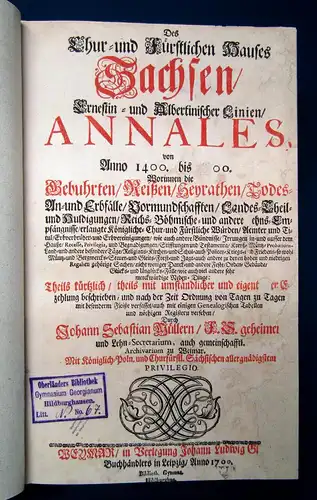 Des
Chur- und Fürstlichen Hauses
Sachsen/
Ernestin- und Albertinischer Linien/
ANNALES,
von
Anno 1400. bis 00.
Worinnen die
Gebuhrten/Reißen/Heyrathen/Todes-
An- und Erbfälle/Vormundschafften/Landes-Theil-
und Huldigungen/Reichs- Böhmische- und andere hns-Em-
pfängnisse/erlangte Königliche-Chur- und Fürstliche Würden/Aemter und Ti-
tul/Erbverbrüder- und Erbvereinigungen/
Glücks- und Unglücks-Fälle/wie auch viel andere sehr
merckwürdige
Theils kürtzlich/theils mit umständlicher und eigent er E-
zehlung beschrieben/und nach der Zeit Ordnung von Tagen zu Tagen
mit besonderem Fleiße verfasset/auch mit einigen Genealogischen Tabellen
und nöthigen Registern versehen/
Durch
Johann Sebastian Müllern/F. S. geheimen
und Lehn-Secretarium, auch gemeinschafftl.
Archivarium zu Weimar.
Mit Königlich-Poln. und Churfürstl. Sächsischen allergnädigstem
PRIVILEGIO.
Oberländers Bibliothek
Gymnasium Georgianum
Hildburghausen.
Litt. No. 67.
WEYMAR/in Verlegung Johann Ludwig Gl
Buchhändlers in Leipzig/Anno 1700.